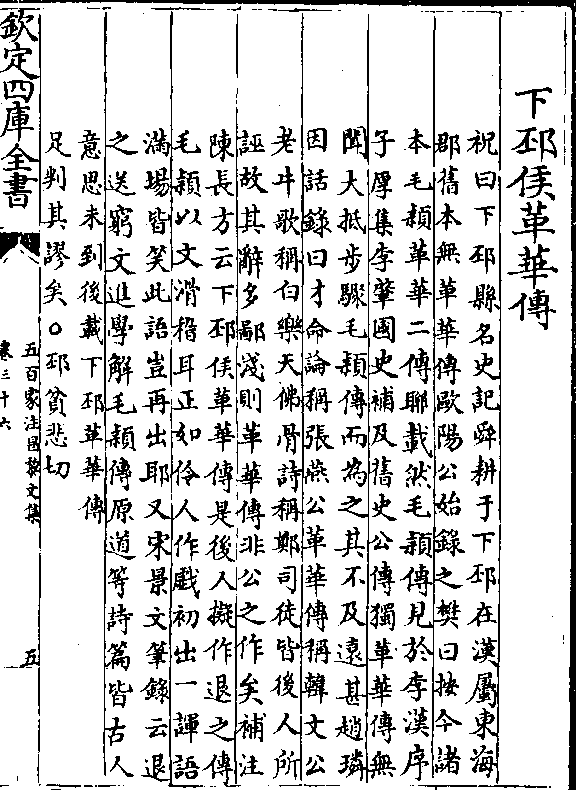 下邳侯革華傳
祝曰下邳縣名史記舜耕于下邳在漢屬東海
郡舊本無革華傳歐陽公始錄之樊曰按今諸
本毛穎革華二傳聯載然毛穎傳見於李漢序
子厚集李肇國史補及舊史公傳獨革華傳無
聞大抵步驟毛穎傳而為之其不及遠甚趙璘
因話錄曰才命論稱張燕公革華傳稱韓文公
老牛歌稱白樂天佛骨詩稱鄭司徒皆後人所
誣故其辭多鄙淺則革華傳非公之作矣補注
陳長方云下邳侯革華傳是後人擬作退之傳
毛穎以文滑稽耳正如伶人作戲初出一諢語
滿場皆笑此語豈再出耶又宋景文筆錄云退
之送窮文進學解毛穎傳原道等詩篇皆古人
意思未到後載下邳革華傳
足判其謬矣○邳貧悲切
欽定四庫全書
卷三十六
五百家注昌黎文集
五